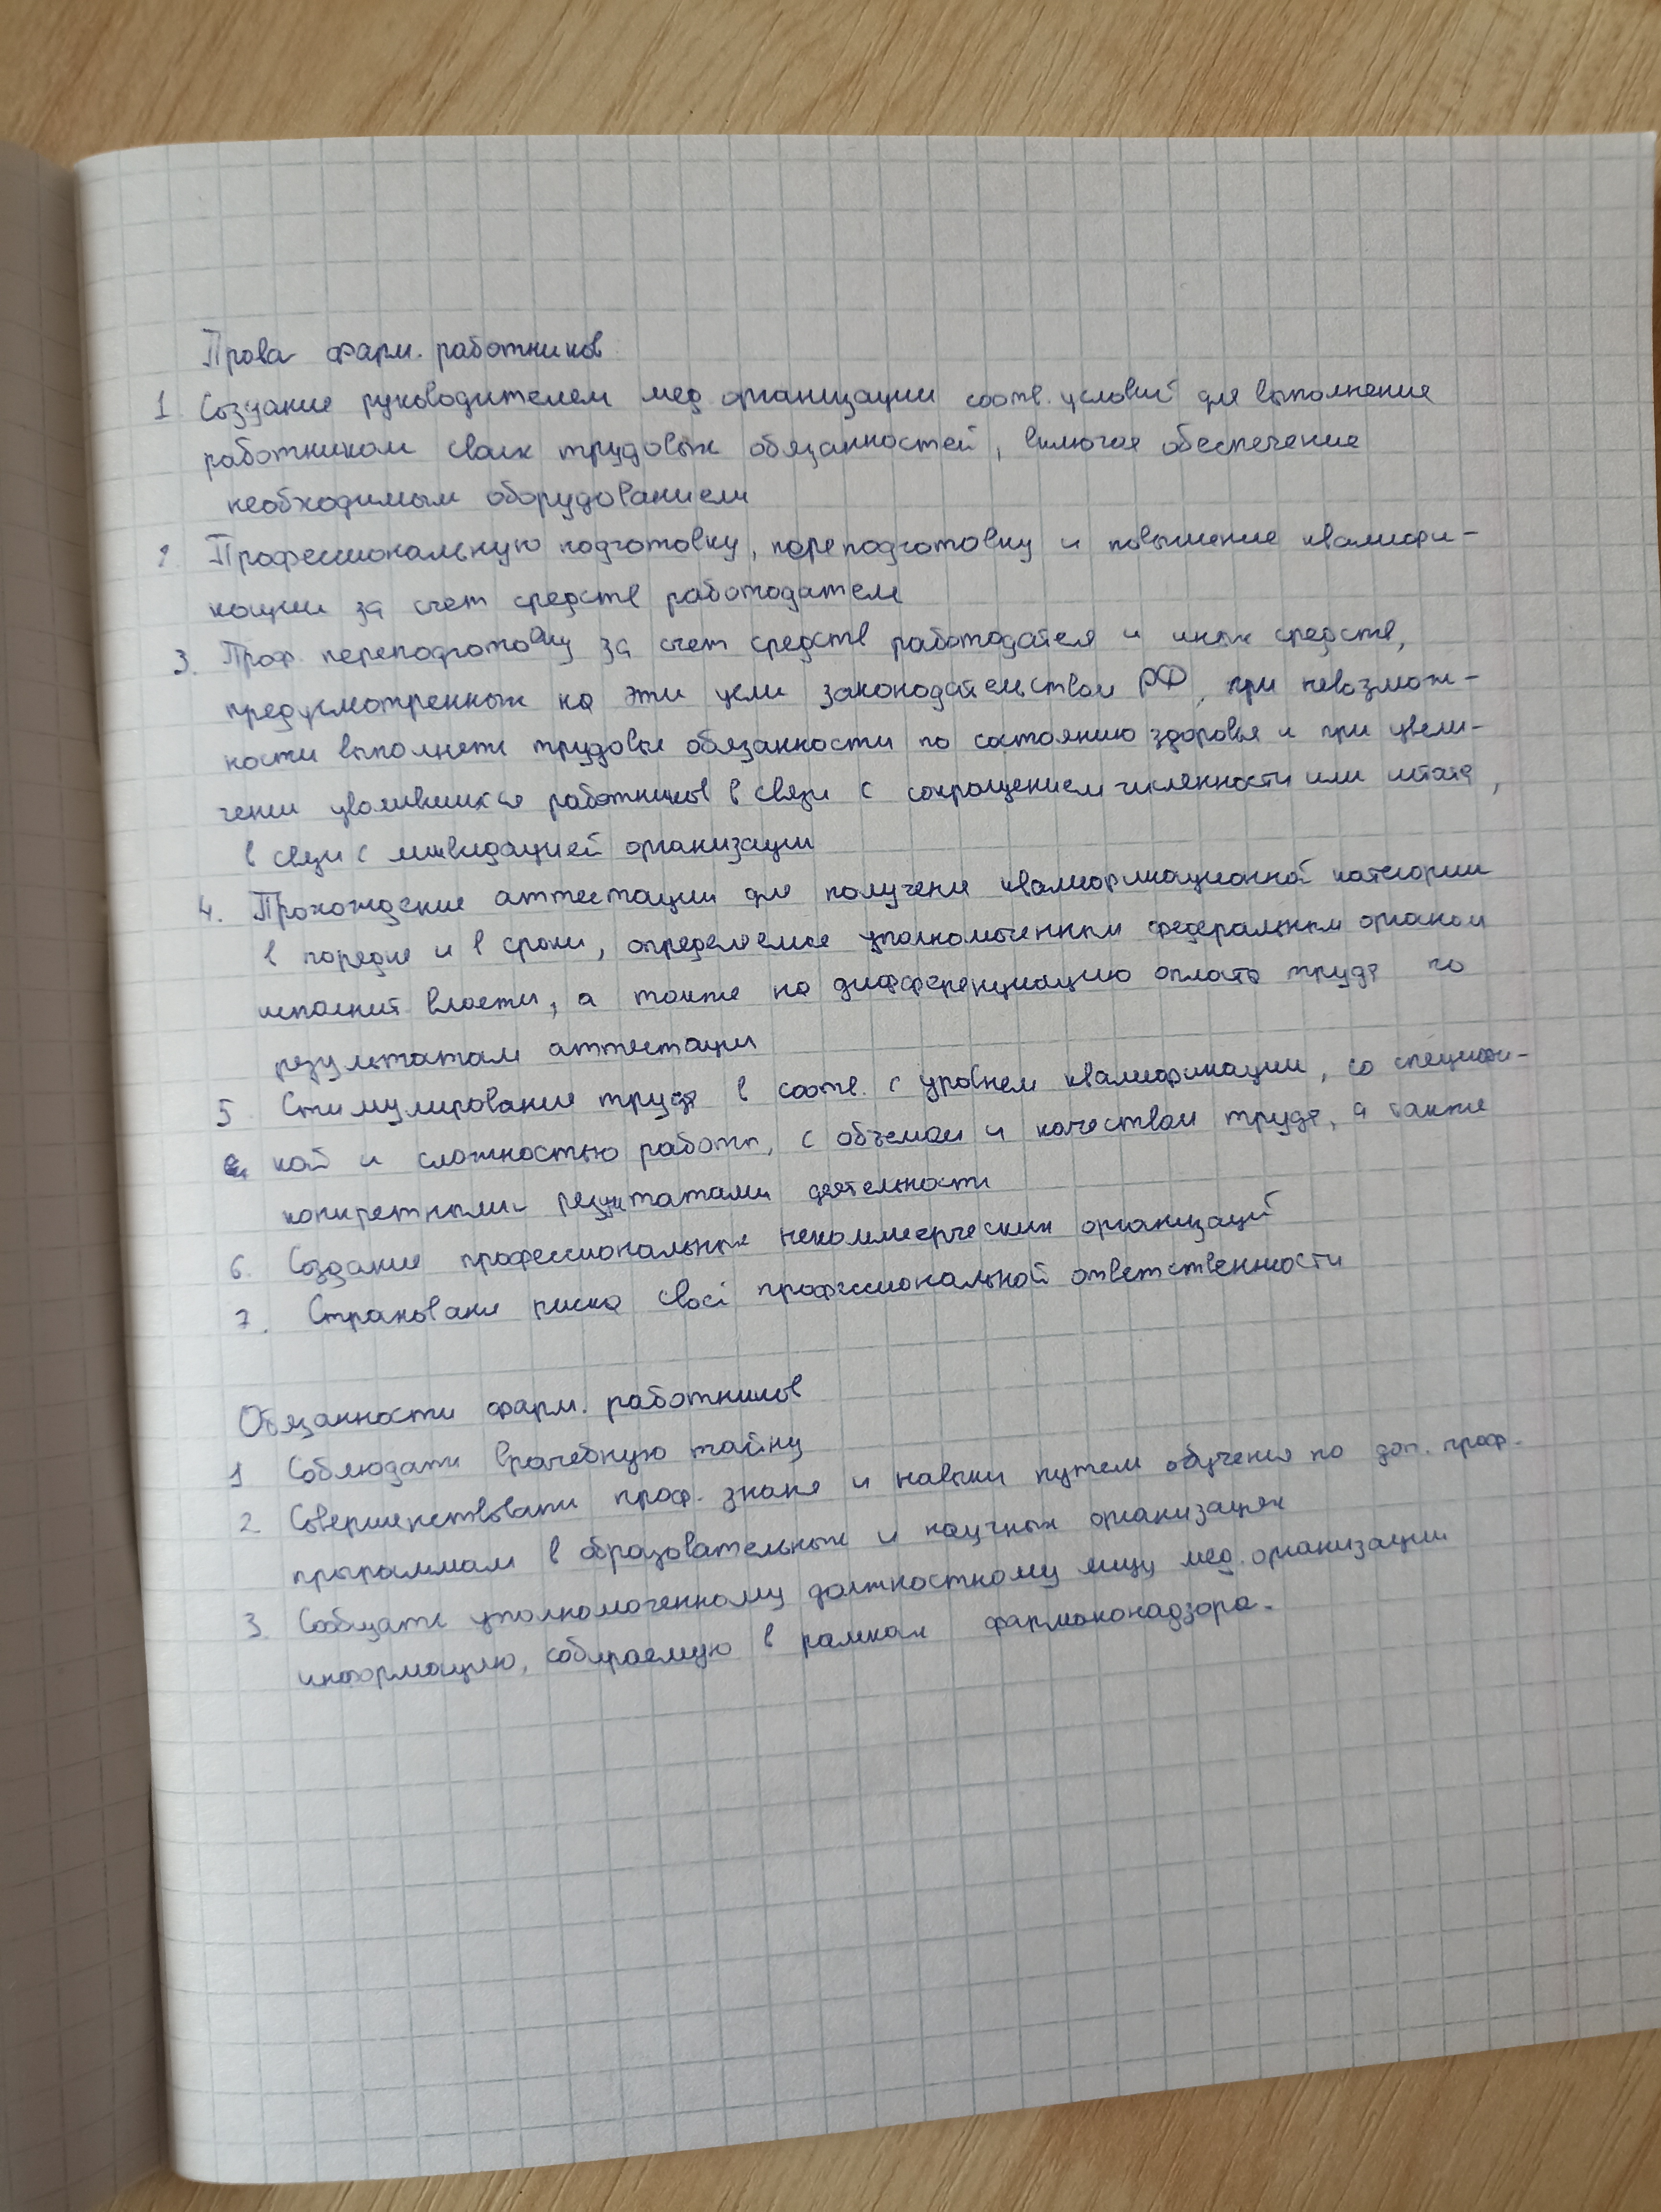 Права фарм. работников
1 Создание руководителем мед организации соотв. условий для выполнения
работником своих трудовых обязанностей, включая обеспечение
необходимым оборудованием
2. Профессиональную подготовку, переподготовку и повышение квалифи-
кации за счет средств работодателя
3. Проф. переподготовку за счет средств работодателя и иных средств,
предусмотренных на эти цели законодательством РФ, при невозмож-
ности выполнять трудовые обязанности по состоянию здоровья и при увели-
чении уволившихся работников в связи с сокращением численности или штата,
в связи с ликвидацией организации
4. Прохождение аттестации для получения квалификационной категории
в порядке и в сроки, определяемые уполномоченным федеральным органом
исполнит. власти, а также на дифференциацию оплаты труда по
результатам аттестации
5. Стимулирование труда в соотв. с уровнем квалификации, со специфи-
кой и сложностью работы, с объемом и качеством труда, а также
конкретными результатами деятельности
6. Создание профессиональных некоммерческих организаций
7. Страхование риска своей профессиональной ответственности
Обязанности фарм. работников
1 Соблюдать врачебную тайну
2 Совершенствовать проф. знания и навыки путем обучения по доп. проф.
программам в образовательных и научных организациях
3. Сообщать уполномоченному должностному лицу мед. организации
информацию, собираемую в рамках фармаконадзора.